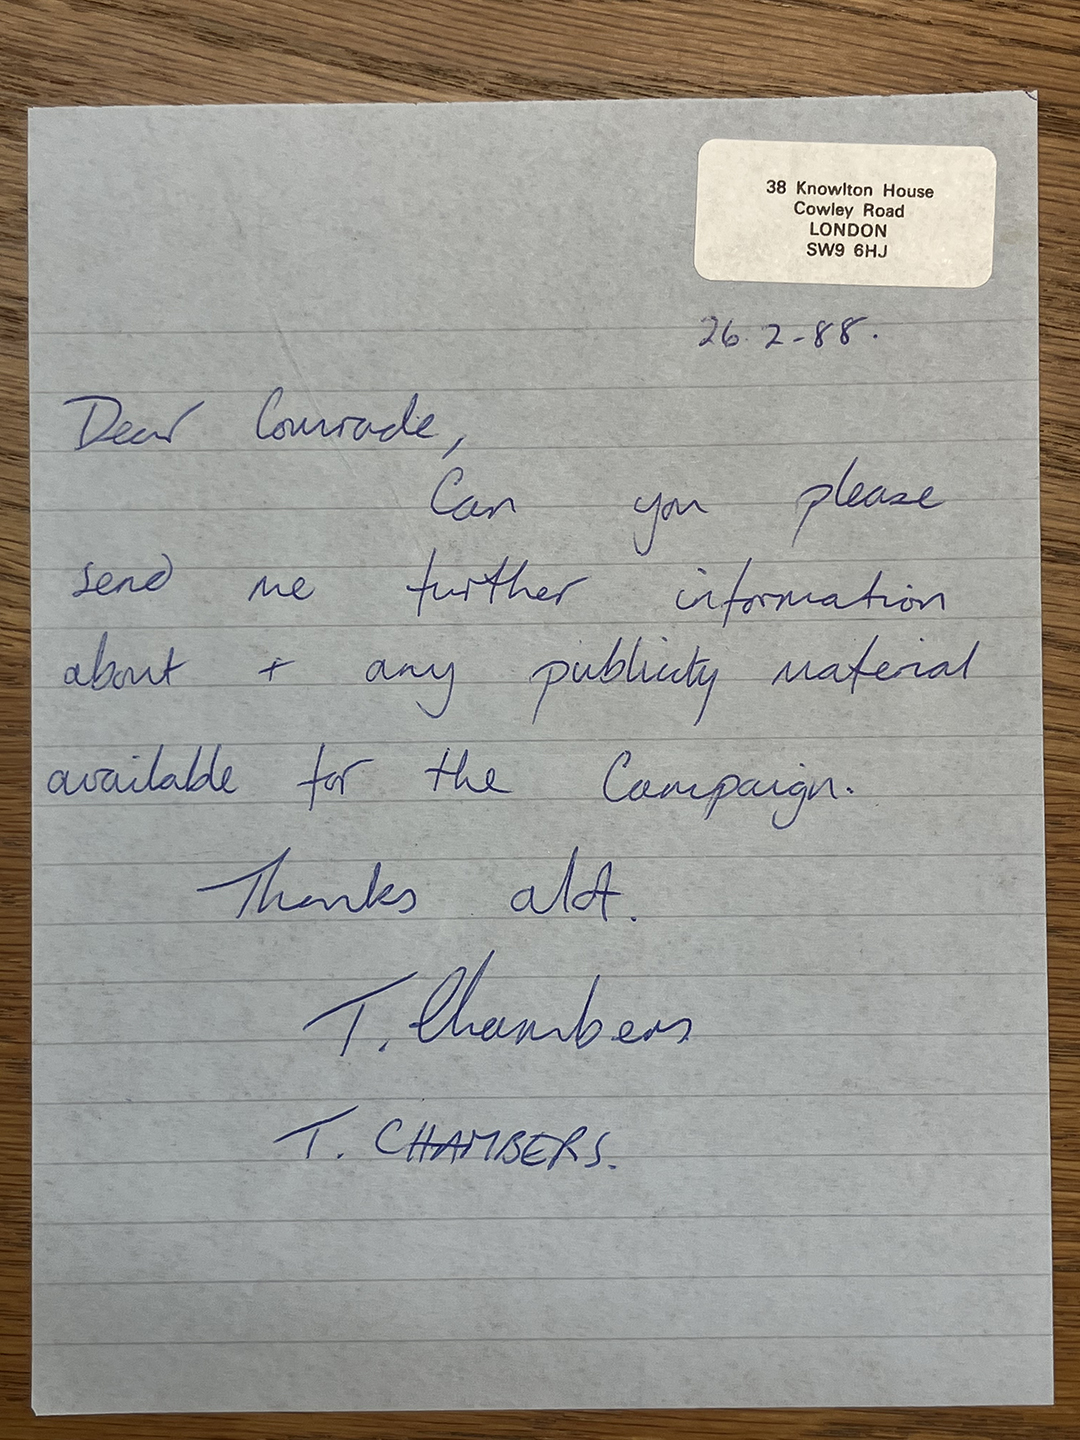 38 Knowlton House
Cowley Road
LONDON
SW9 6HJ
26.2-88.
Dear Comrade,
Can you please
send me further information
about + any publicity material
available for the Campaign.
Thanks alot.
T. Chambers
T. CHAMBERS.